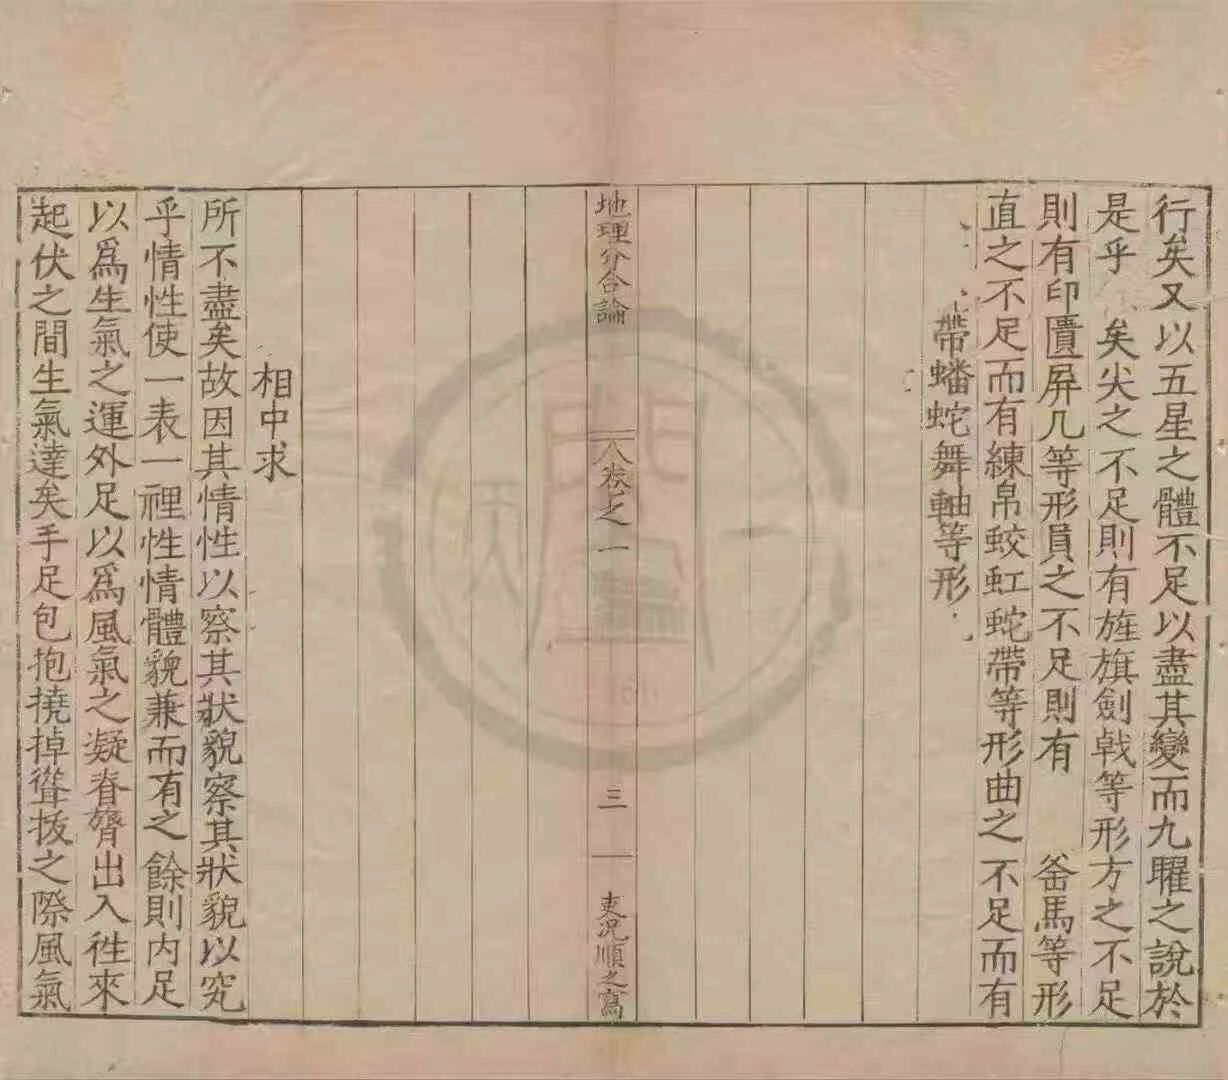 行矣又以五星之體不足以盡其變而九曜之說於
是乎 矣尖之不足則有旌旗劍戟等形方之不足
則有印匱屏几等形員之不足則有 釜馬等形
直之不足而有練帛蛟虹蛇帶等形曲之不足而有
帶蟠蛇舞軸等形
地理分合論
卷之一
三
吏况順之寫
相中求
所不盡矣故因其情性以察其狀貌察其狀貌以究
乎情性使一表一裡性情體貌兼而有之餘則内足
以爲生氣之運外足以爲風氣之凝脊膂出入徃來
起伏之間生氣達矣手足包抱撓掉聳拔之際風氣